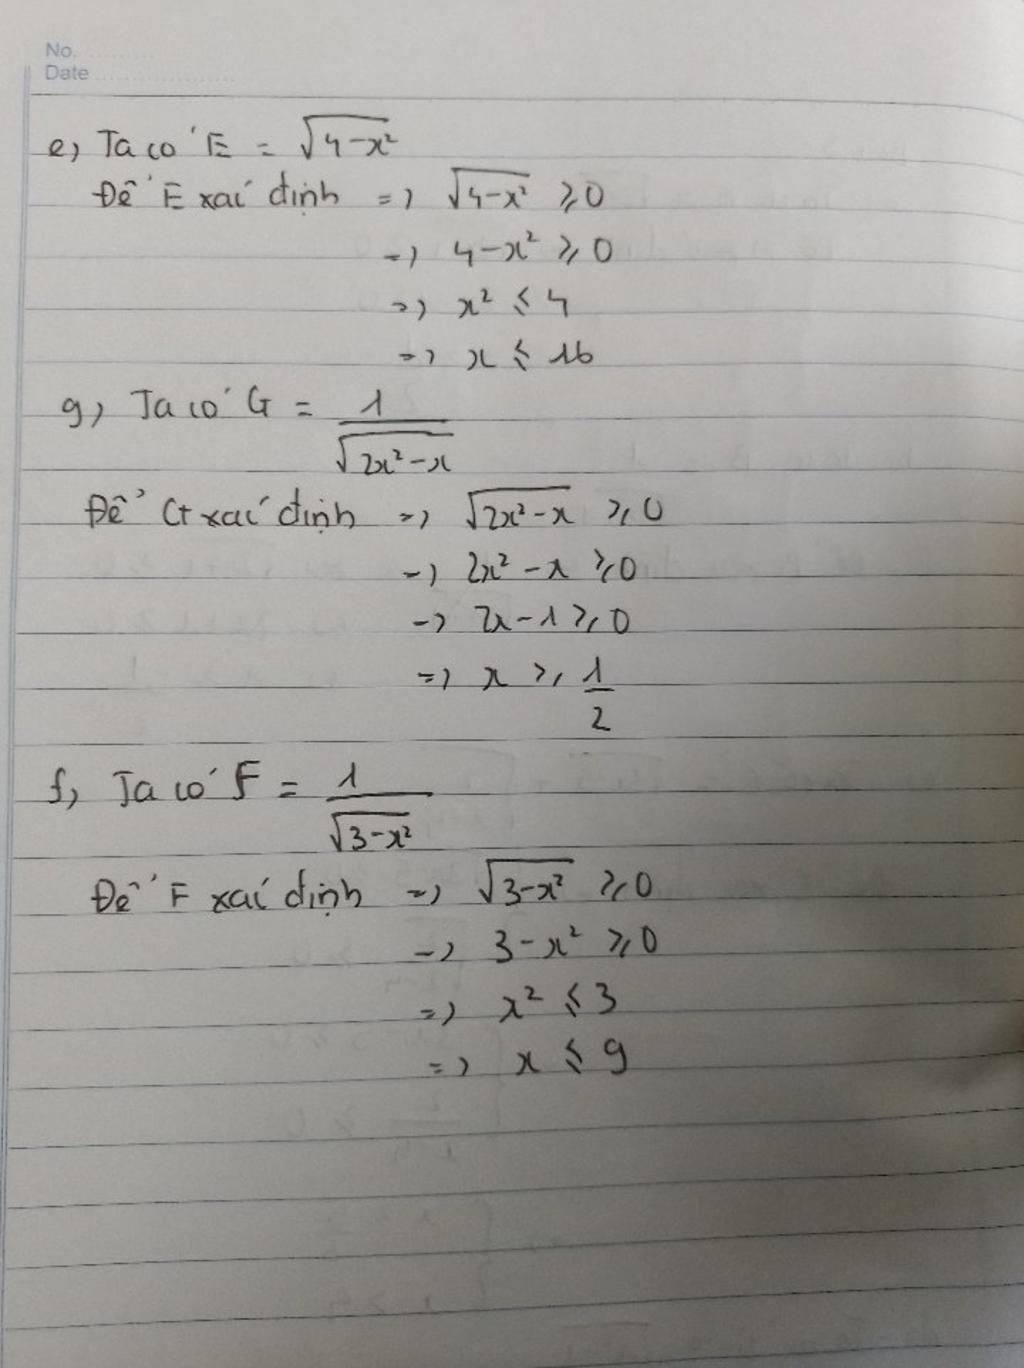 No.
Date
e, Ta có E = √(4-x²)
Để E xác định => √(4-x²) ⩾ 0
=> 4-x² ⩾ 0
=> x² ⩽ 4
=> x ⩽ 16
g, Ta có G = 1/√(2x²-x)
Để G xác định => √(2x²-x) ⩾ 0
=> 2x² - x ⩾ 0
=> 2x - 1 ⩾ 0
=> x ⩾ 1/2
f, Ta có F = 1/√(3-x²)
Để F xác định => √(3-x²) ⩾ 0
=> 3-x² ⩾ 0
=> x² ⩽ 3
=> x ⩽ 9